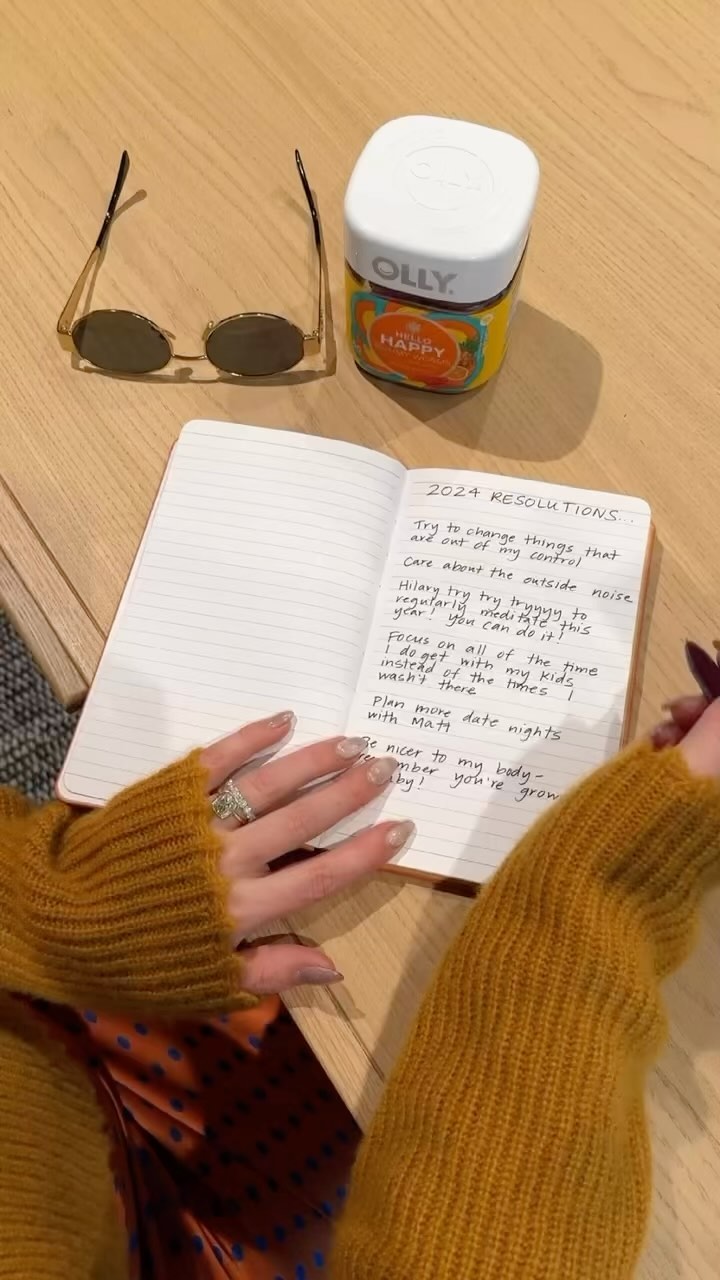 OLLY
OLLY.
HELLO
HAPPY
GUMMY WORMS
2024 RESOLUTIONS...
Try to change things that
are out of my control
Care about the outside noise
Hilary try try tryyyy to
regularly meditate this
year! you can do it!
Focus on all of the time
I do get with my kids
instead of the times I
wasn't there
Plan more date nights
with Matt
Be nicer to my body-
you're grow